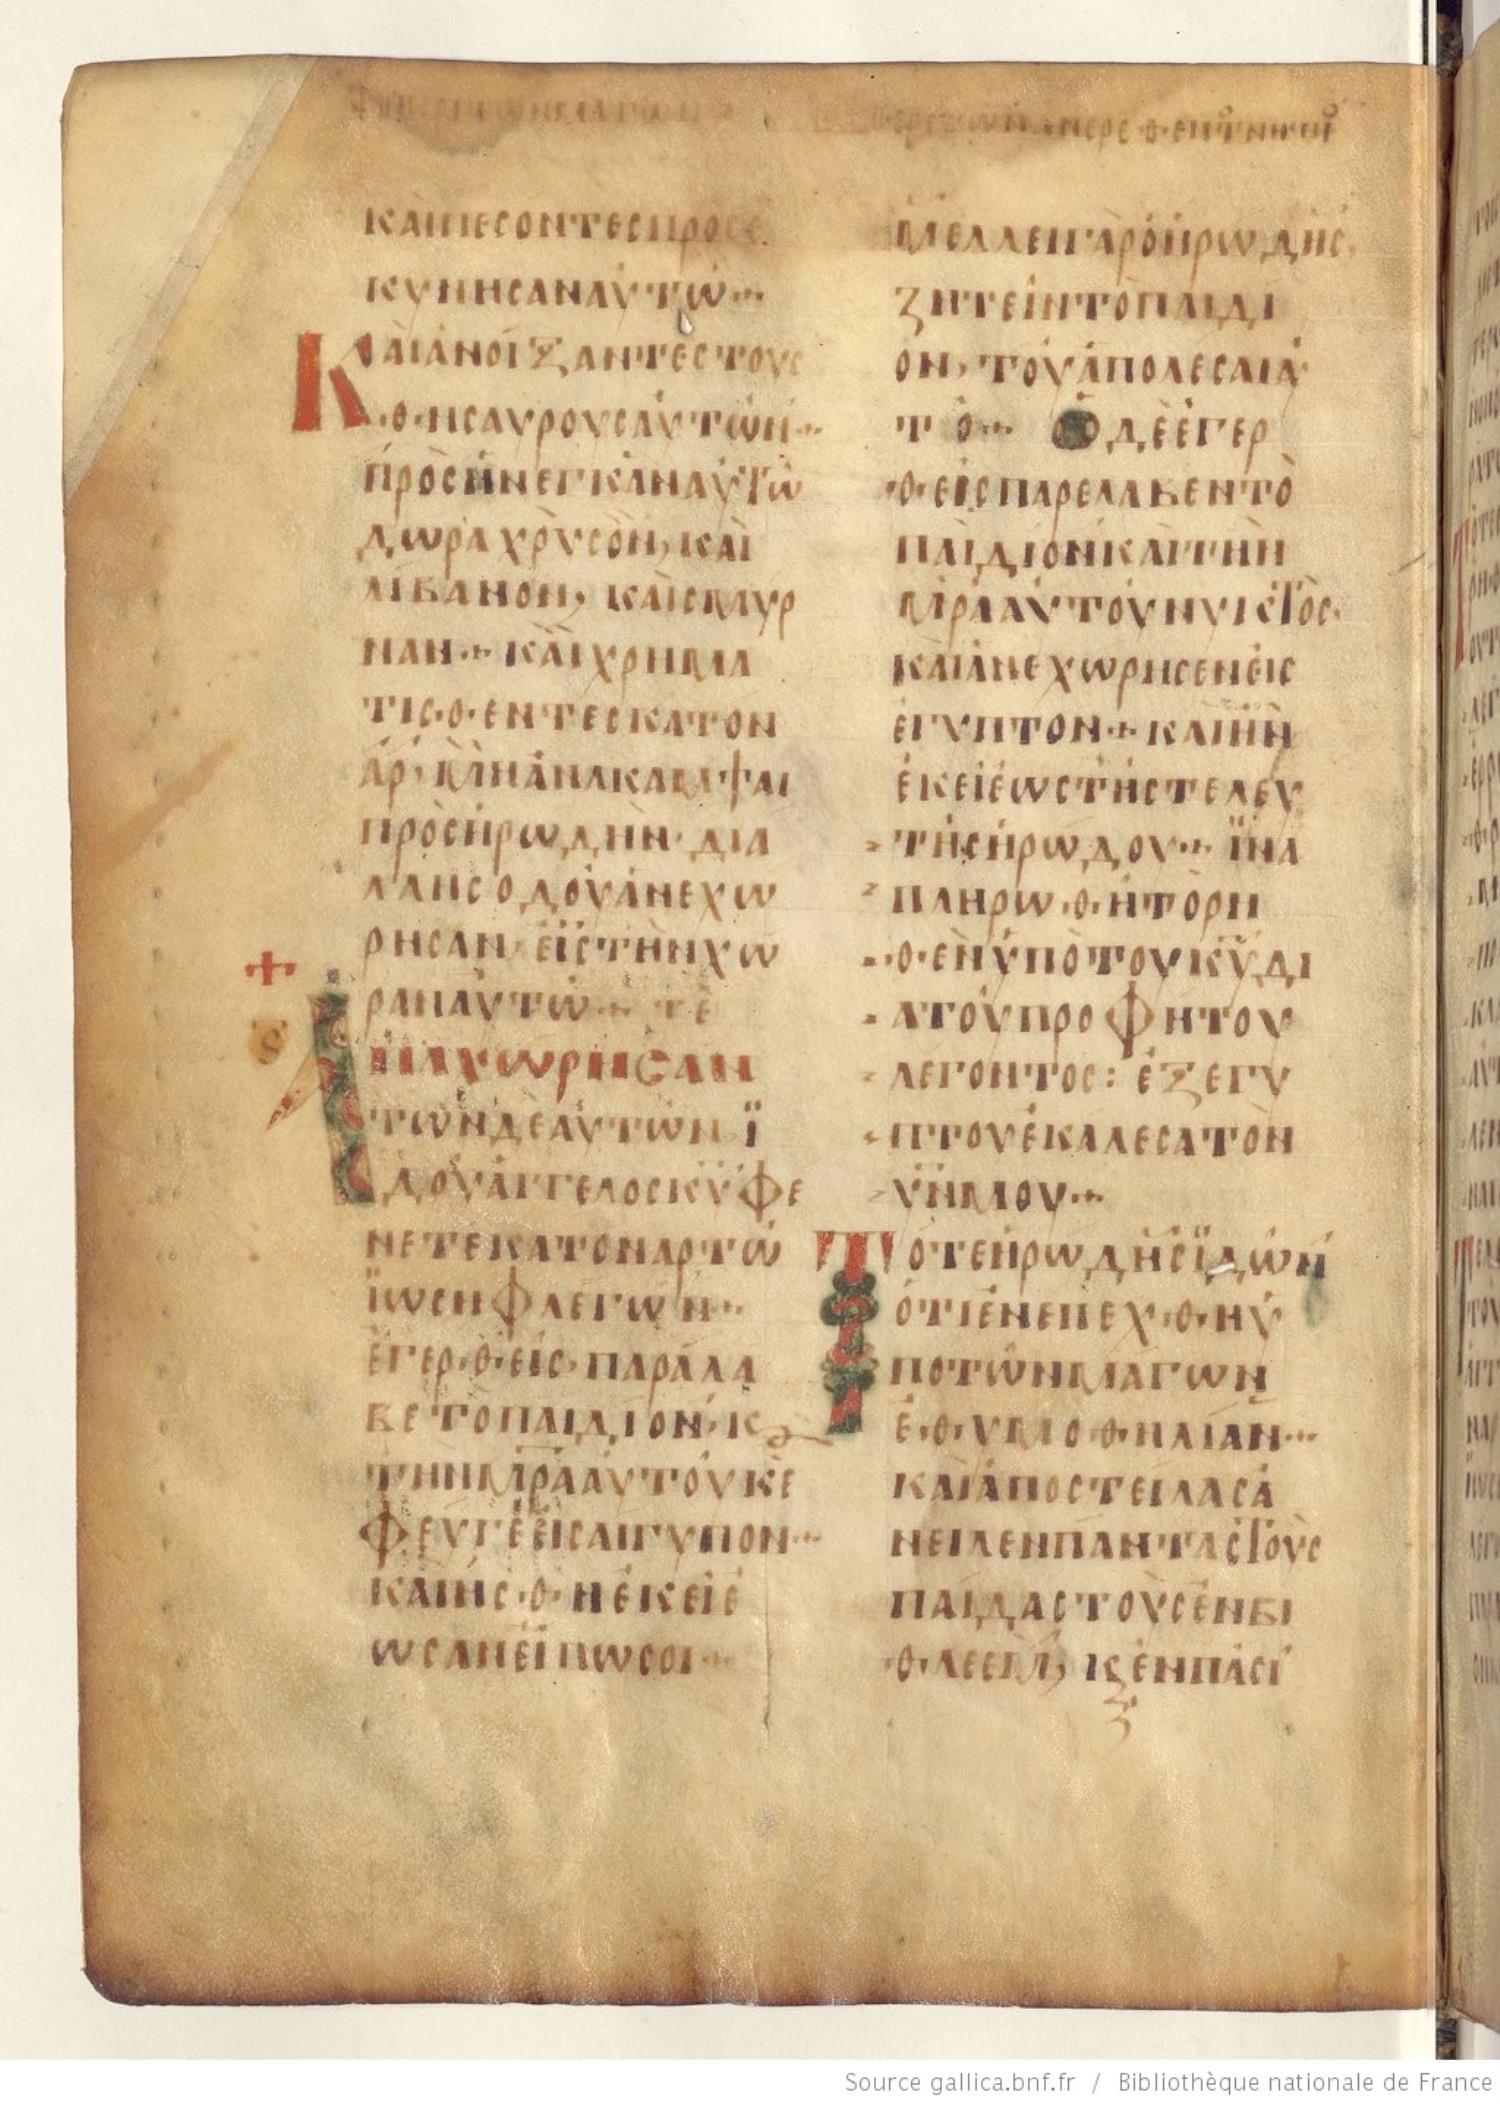 ΚΑῚΠΕCΟΝΤΕCΠΡΟCΕ
ΚΥΝΗCΑΝΑΥΤΩ
ΚΑῚΑΝΟΙΞΑΝΤΕCΤΟΥC
ΘΗCΑΥΡΟΥCΑΥΤΩΝ
ΠΡΟCΗΝΕΓΚΑΝΑΥΤΩ
ΔΩΡΑΧΡΥCΟΝ, ΚΑΙ
ΛΙΒΑΝΟΝ, ΚΑΙCΜΥΡ
ΝΑΝ+ ΚΑΙΧΡΗΜΑ
ΤΙCΘΕΝΤΕCΚΑΤΟΝ
ΑΡ, ΜΗΑΝΑΚΑΜΨΑΙ
ΠΡΟCΗΡΩΔΗΝ· ΔΙΑ
ΛΛΗCΟΔΟΥΑΝΕΧΩ
ΡΗCΑΝ ΕΙCΤΗΝΧΩ
ΡΑΝΑΥΤΩ+ ΤΕ
ΑΝΑΧΩΡΗCΑΝ
ΤΩΝΔΕΑΥΤΩΝ Ϊ
ΔΟΥΑΓΓΕΛΟCΚΥΦΕ
ΝΕΤΕΚΑΤΟΝΑΡΤΩ
ΪΩCΗΦΛΕΓΩΝ
ΕΓΕΡΘΕΙC, ΠΑΡΑΛΑ
ΒΕΤΟΠΑΙΔΙΟΝ, Κ
ΤΗΝΜΡΑΑΥΤΟΥΚΕ
ΦΕΥΓΕΕΙCΑΙΓΥΠΟΝ
ΚΑΙΗCΘΗΕΚΕΙΕ
ΩCΑΝΕΙΠΩCΟΙ
ΜΕΛΛΕΙΓΑΡΟΗΡΩΔΗC,
ΖΗΤΕΙΝΤΟΠΑΙΔΙ
ΟΝ, ΤΟΥΑΠΟΛΕCΑΙΑΥ
ΤΟ ΟΔΕΕΓΕΡ
ΘΕΙCΠΑΡΕΛΑΒΕΝΤΟ
ΠΑΙΔΙΟΝΚΑΙΤΗΝ
ΜΡΑΑΥΤΟΥΝΥΚΤΟC·
ΚΑΙΑΝΕΧΩΡΗCΕΝΕΙC
ΕΓΥΠΤΟΝ+ ΚΑΙΗΝ
ΕΚΕΙΕΩCΤΗCΤΕΛΕΥ
ΤΗCΗΡΩΔΟΥ ΪΝΑ
ΠΛΗΡΩΘΗΤΟΡΗ
ΘΕΝΥΠΟΤΟΥΚΥΔΙ
ΑΤΟΥΠΡΟΦΗΤΟΥ
ΛΕΓΟΝΤΟC: ΕΞΕΓΥ
ΠΤΟΥΕΚΑΛΕCΑΤΟΝ
ΥΝΜΟΥ
ΤΟΤΕΗΡΩΔΗCΪΔΩΝ
ΟΤΙΕΝΕΠΕΧΘΗΥ
ΠΟΤΩΝΜΑΓΩΝ
ΕΘΥΜΟΘΗΛΙΑΝ
ΚΑΙΑΠΟCΤΕΙΛΑCΑ
ΝΕΙΛΕΝΠΑΝΤΑCΤΟΥC
ΠΑΙΔΑCΤΟΥCΕΝΒΙ
ΘΛΕΕΜ, ΚΕΝΠΑCΙ